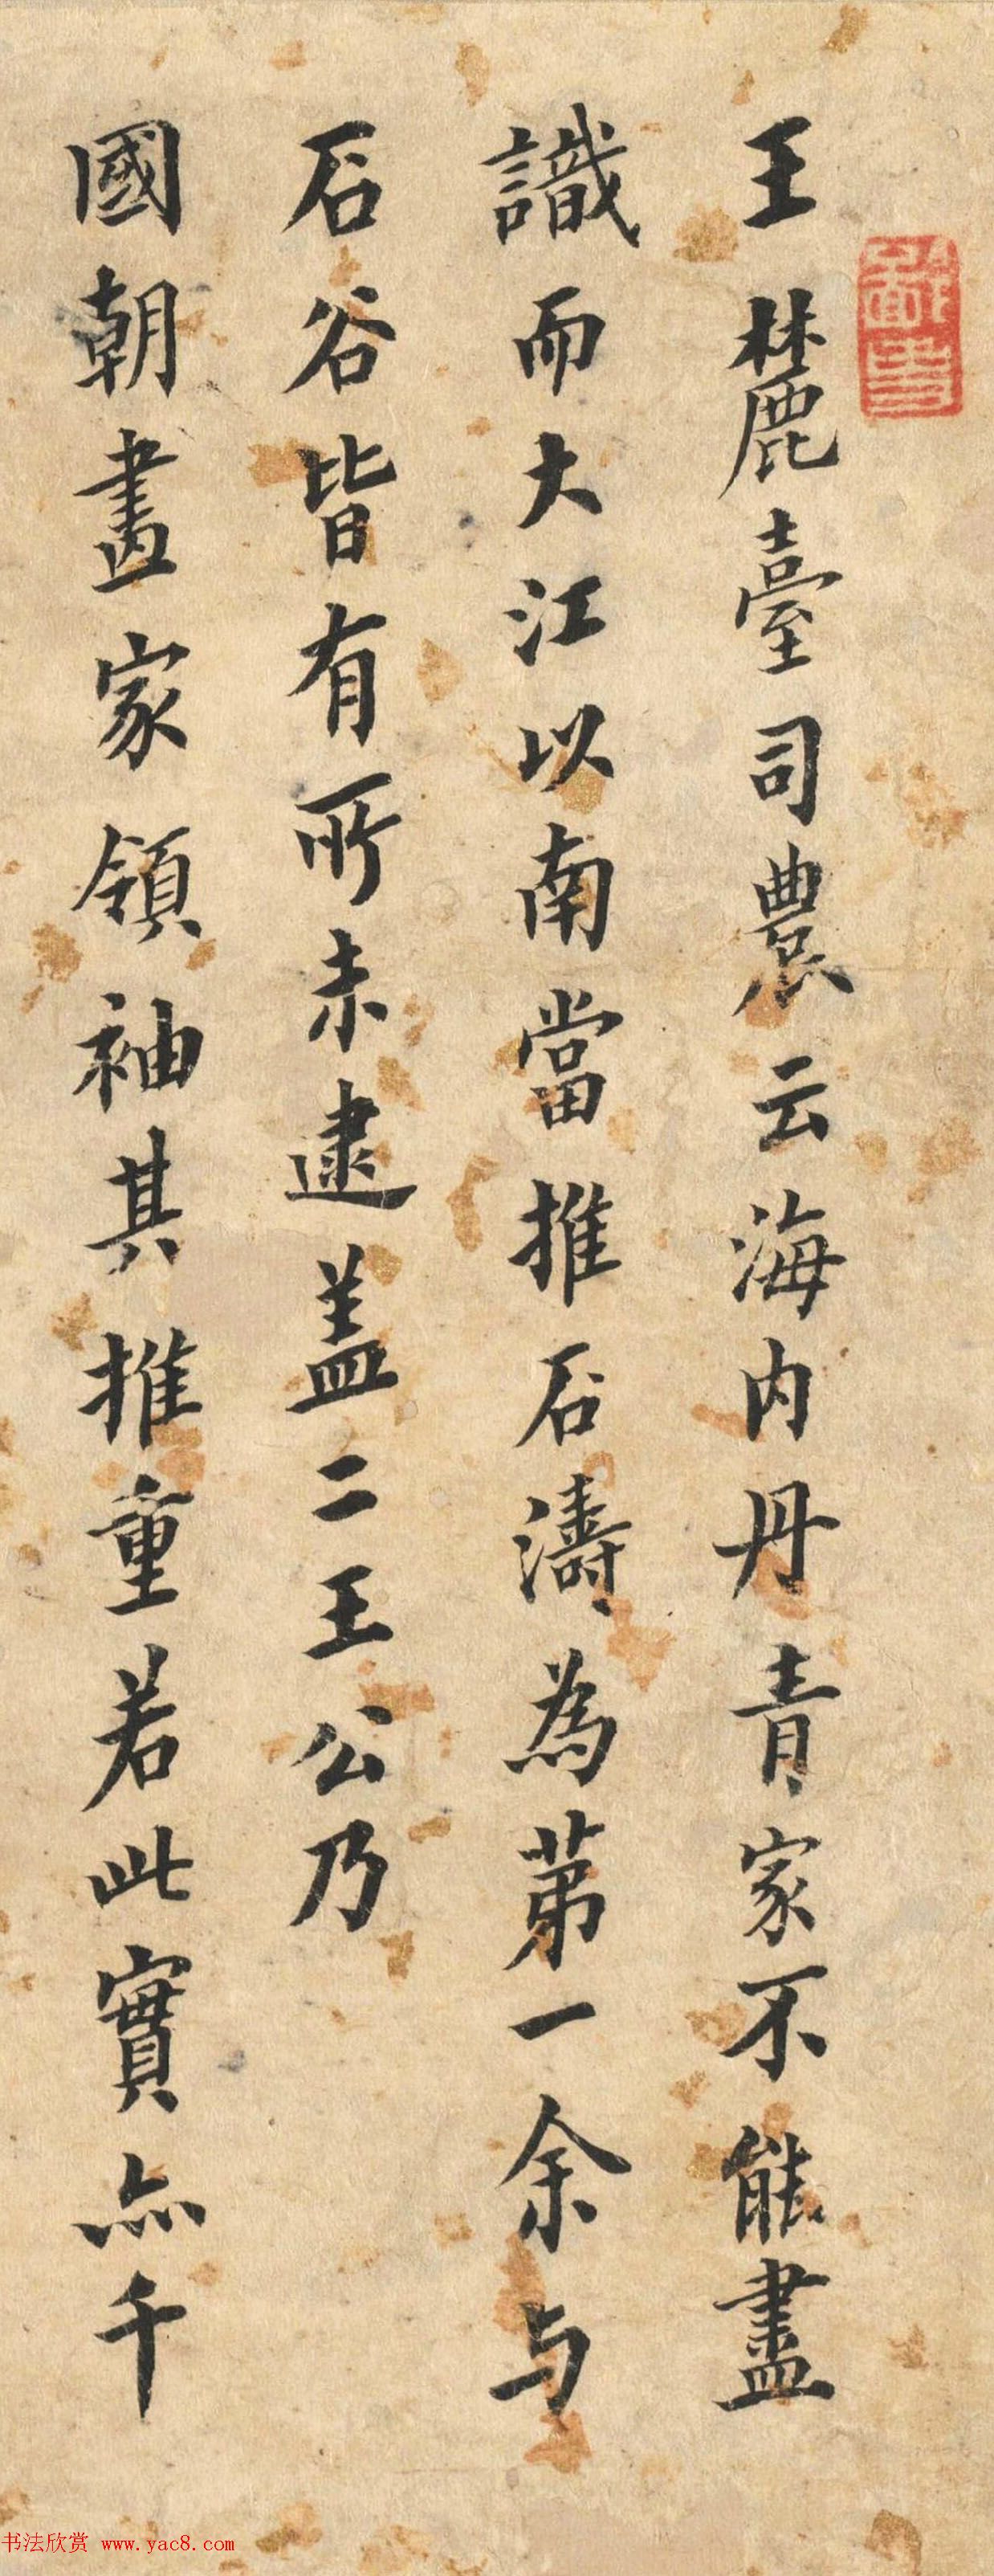 王麓臺司農云海内丹青家不能盡
識而大江以南當推石濤為第一余与
石谷皆有所未逮盖二王公乃
國朝畫家領袖其推重若此實亦千
书法欣赏 www.yac8.com